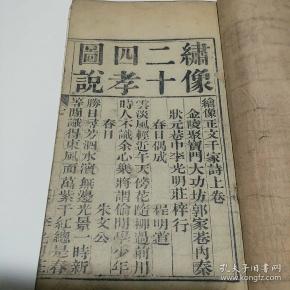 繡像
二十
四孝
圖說
繪像正文千家詩上卷
金陵聚寶門大功坊郭家巷內秦
狀元巷中李光明莊梓行
春日偶成
程明道
雲淡風輕近午天傍花隨柳過前川
時人不識余心樂將謂偷閒學少年
春日
朱文公
勝日尋芳泗水濱無邊光景一時新
等閒識得東風面萬紫千紅總是春
孔夫子旧书网